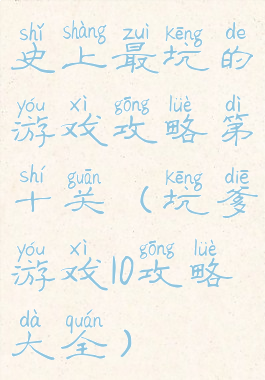 shǐ shàng zuì kēng de
史上最坑的
yóu xì gōng lüè dì
游戏攻略第
shí guān kēng diē
十关（坑爹
yóu xì gōng lüè
游戏10攻略
dà quán
大全）